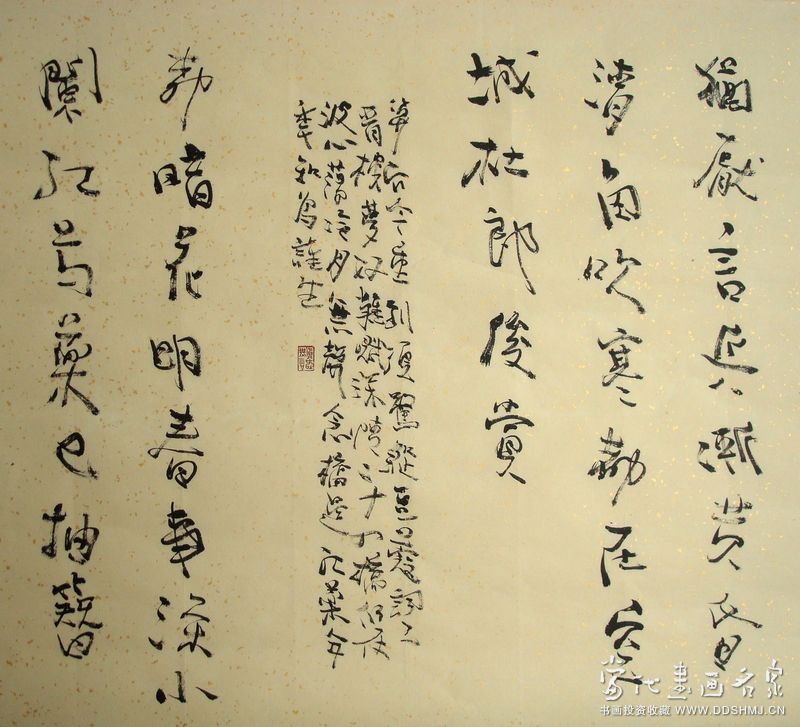 猶厭言兵漸黄昏
清角吹寒都在空
城杜郎俊賞
算而今重到須驚縱豆蔻詞工
青樓夢好難賦深情二十四橋仍在
波心蕩冷月無聲念橋邊紅藥年
年知為誰生
柳暗花明春事深小
闌紅芍藥已抽簪
當代書畫名家
书画投资收藏 WWW.DDSHMJ.CN